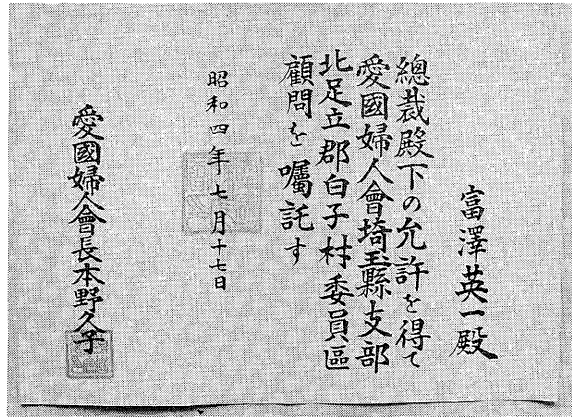 富澤英一殿
總裁殿下の允許を得て
愛國婦人會埼玉縣支部
北足立郡白子村委員區
顧問を囑託す
昭和四年七月十七日
愛國婦人會長本野久子